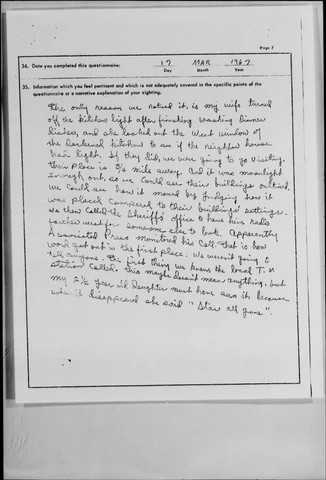 Page 7
34. Date you completed this questionnaire: 17 MAR 1967
Day Month Year
35. Information which you feel pertinent and which is not adequately covered in the specific points of the
questionnaire or a narrative explanation of your sighting.
The only reason we noticed it, is my wife turned
off the kitchen light after finishing washing dinner
dishes, and she looked out the west window of
the darkened kitchen to see if the neighbor house
had light. If they did, we were going to go visiting.
their place is 3/4 mile away. And it was moonlight
enough out, so we could see their buildings outlined.
we could see how it moved by judging how it
was placed compared to their buildings settings.
we then called the Sheriff's office to have him radio
further west for someone else to look. Apparently
Associated Press monitored his call. That is how
word got out in the first place. We weren't going to
tell anyone. the first thing we knew the local T.V.
station called. this maybe doesn't mean anything, but
my 2½ year old daughter must have seen it, because
when it disappeared she said "Star all gone".